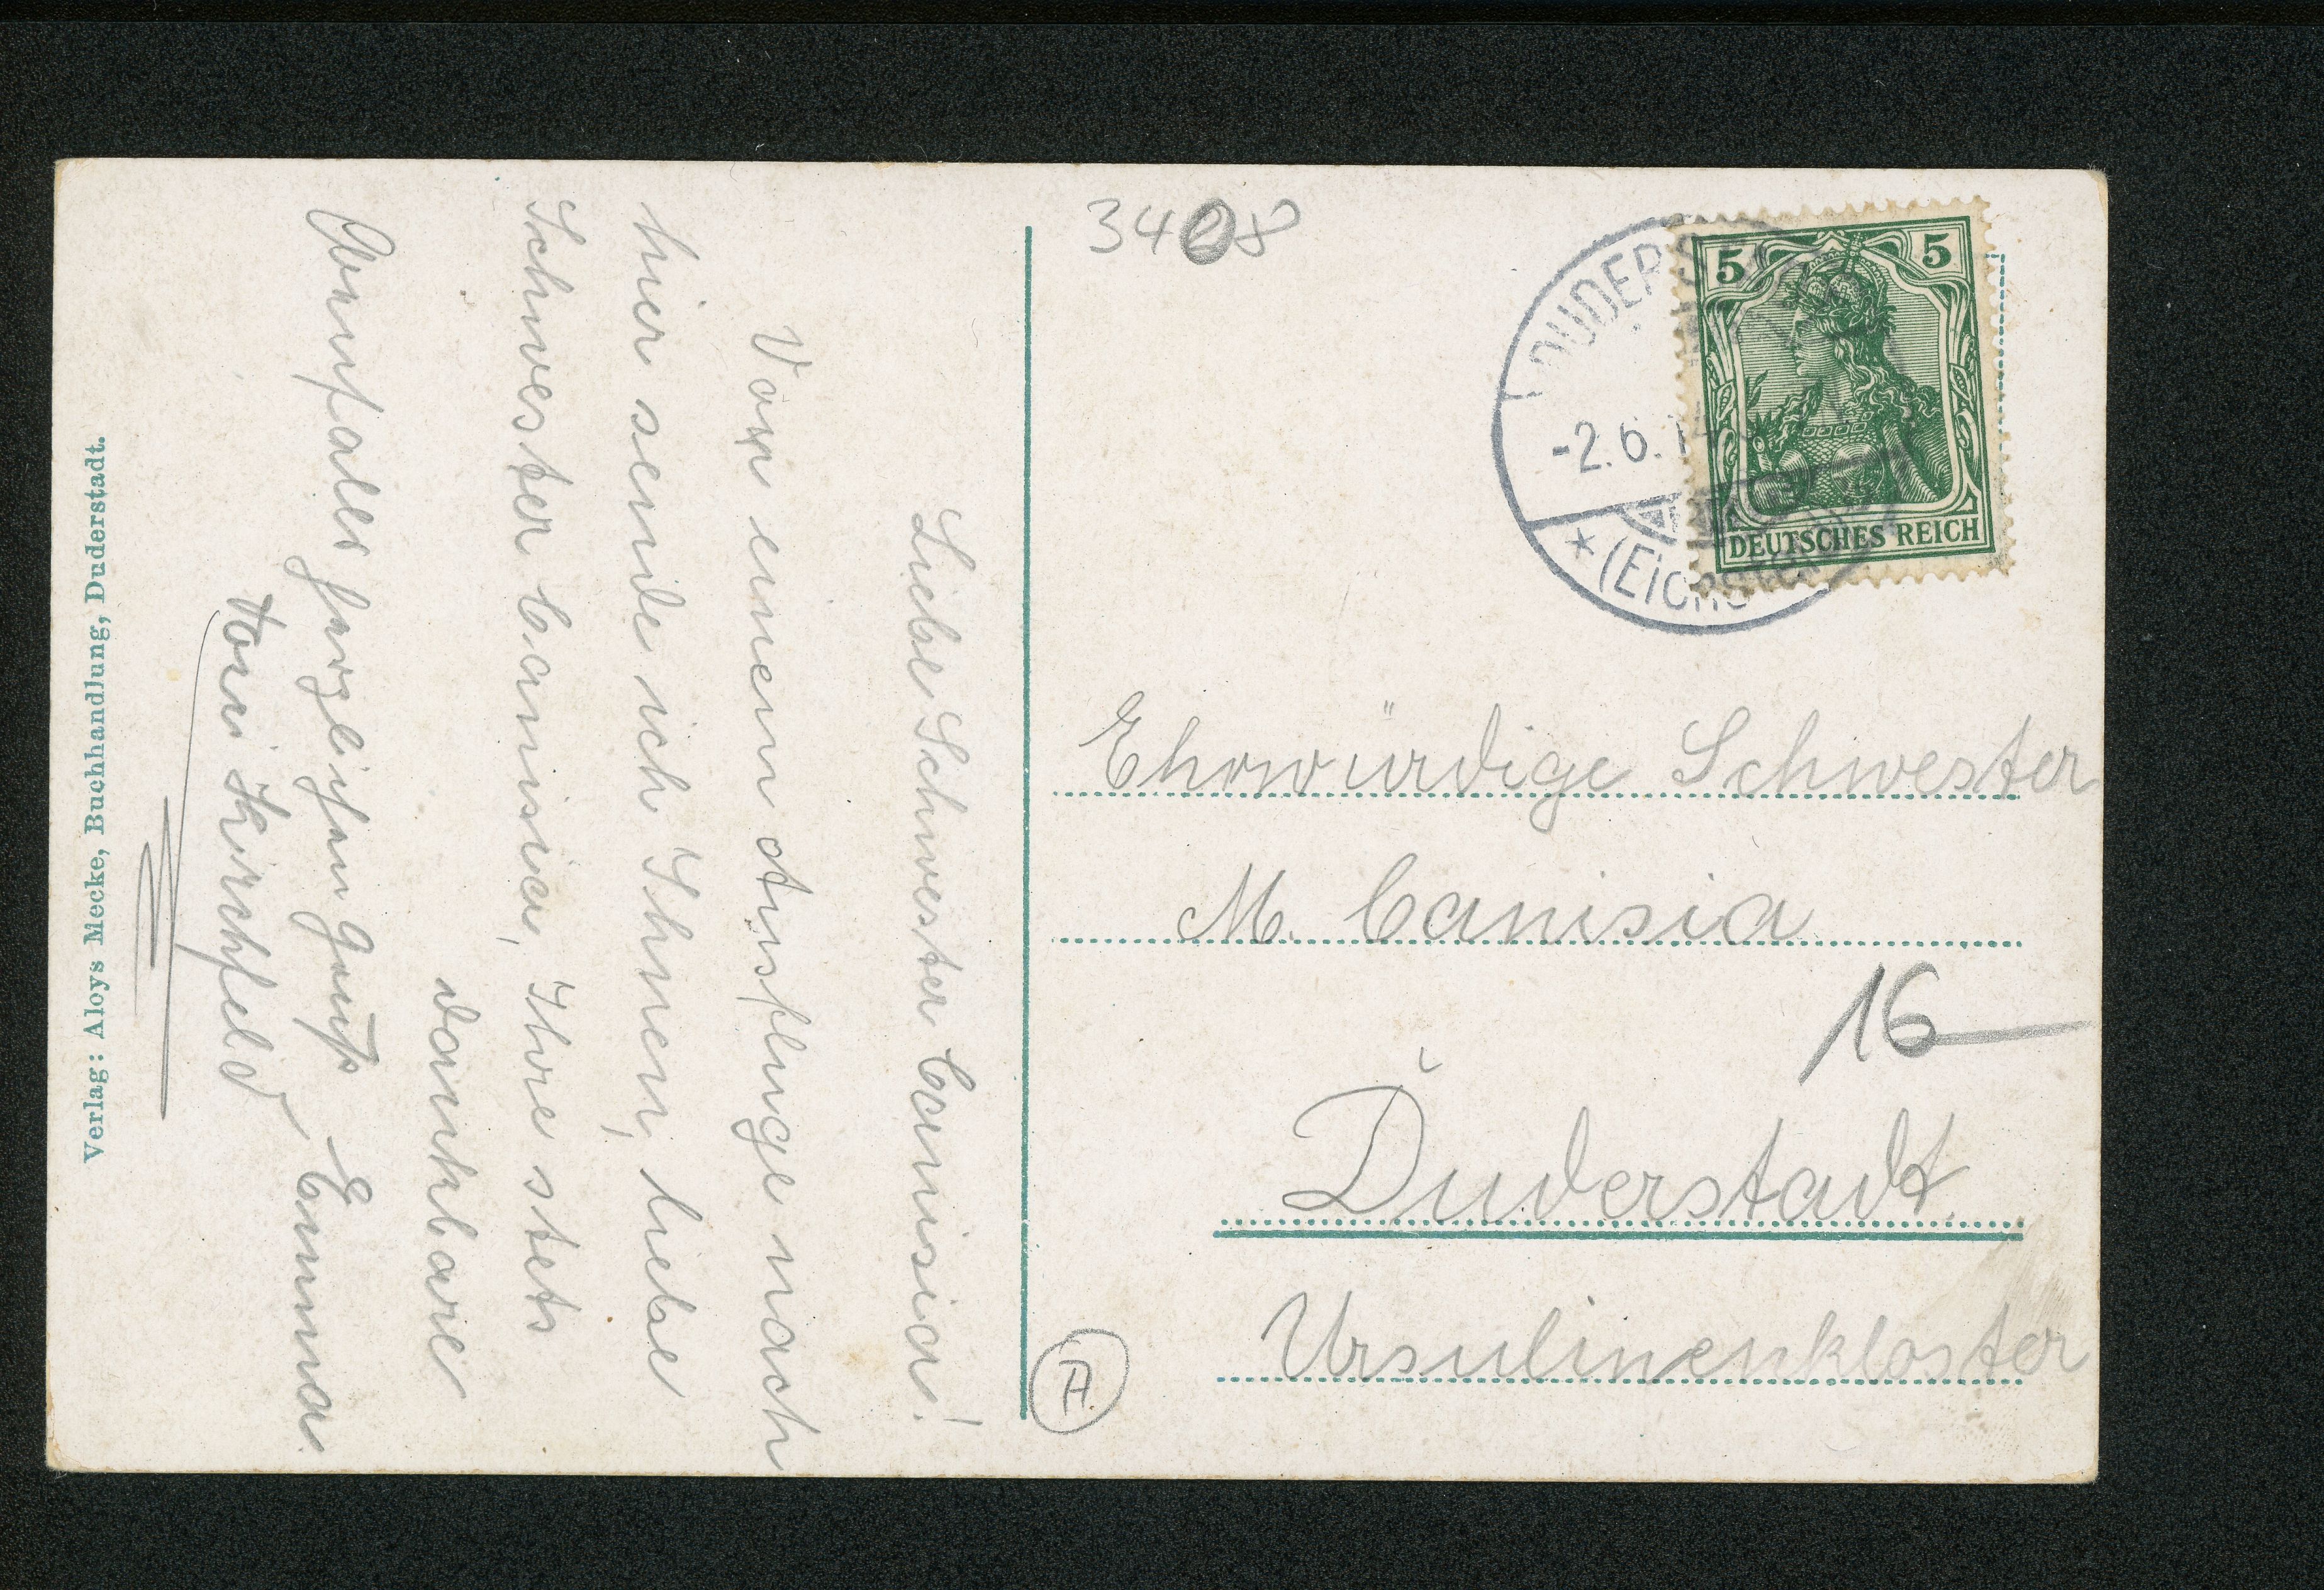 Liebe Schwester Canisia!
Von einem Ausfluge nach
hier sende ich Ihnen, liebe
Schwester Canisia, Ihre stets
dankbare
Emma
Ebenfalls herzlichen Gruß
Toni Kirchfeld
Verlag: Aloys Mecke, Buchhandlung, Duderstadt.
3408
5 5
DEUTSCHES REICH
DUDERS
-2.6.14
* (Eichsf
Ehrwürdige Schwester
M. Canisia
16
Duderstadt.
Ursulinenkloster
A.